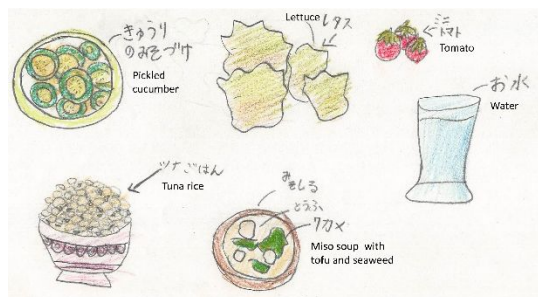 きゅうり
のみそづけ
Pickled
cucumber
Lettuce
レタス
ミニ
トマト
Tomato
お水
Water
ツナごはん
Tuna rice
みそしる
とうふ
ワカメ
Miso soup with
tofu and seaweed